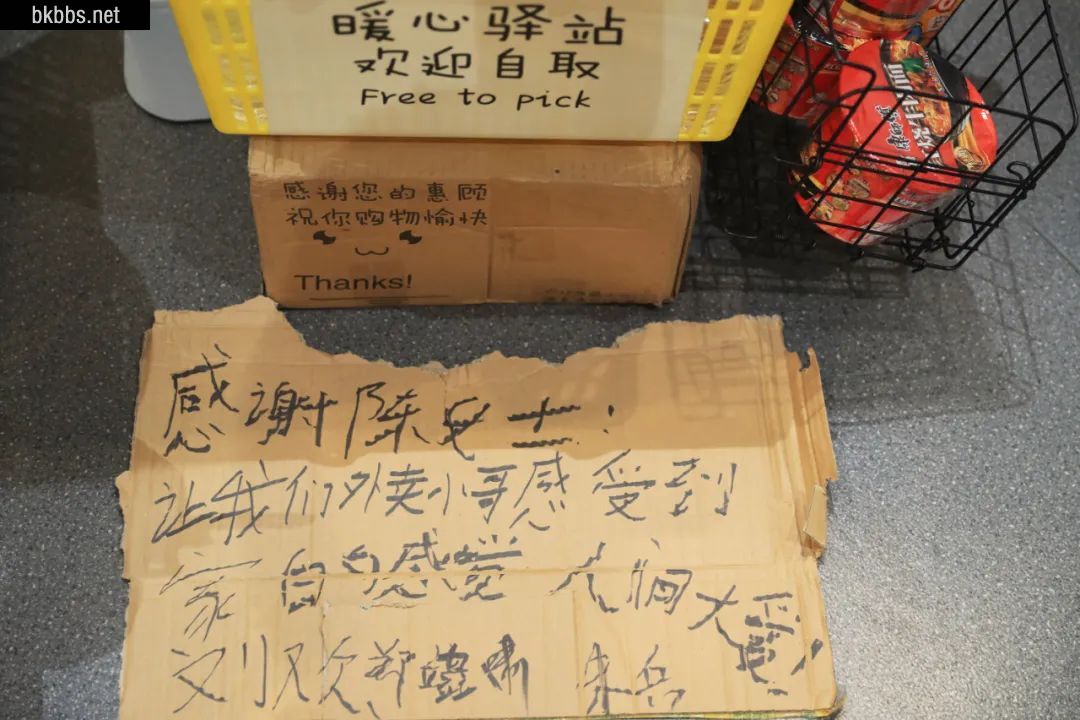 bkbbs.net
暖心驿站
欢迎自取
Free to pick
康师傅
感谢您的惠顾
祝你购物愉快
Thanks!
感谢陈女士:
让我们外卖小哥感受到
家自勺感觉 人间大爱!
刘欢 郑 朱兵